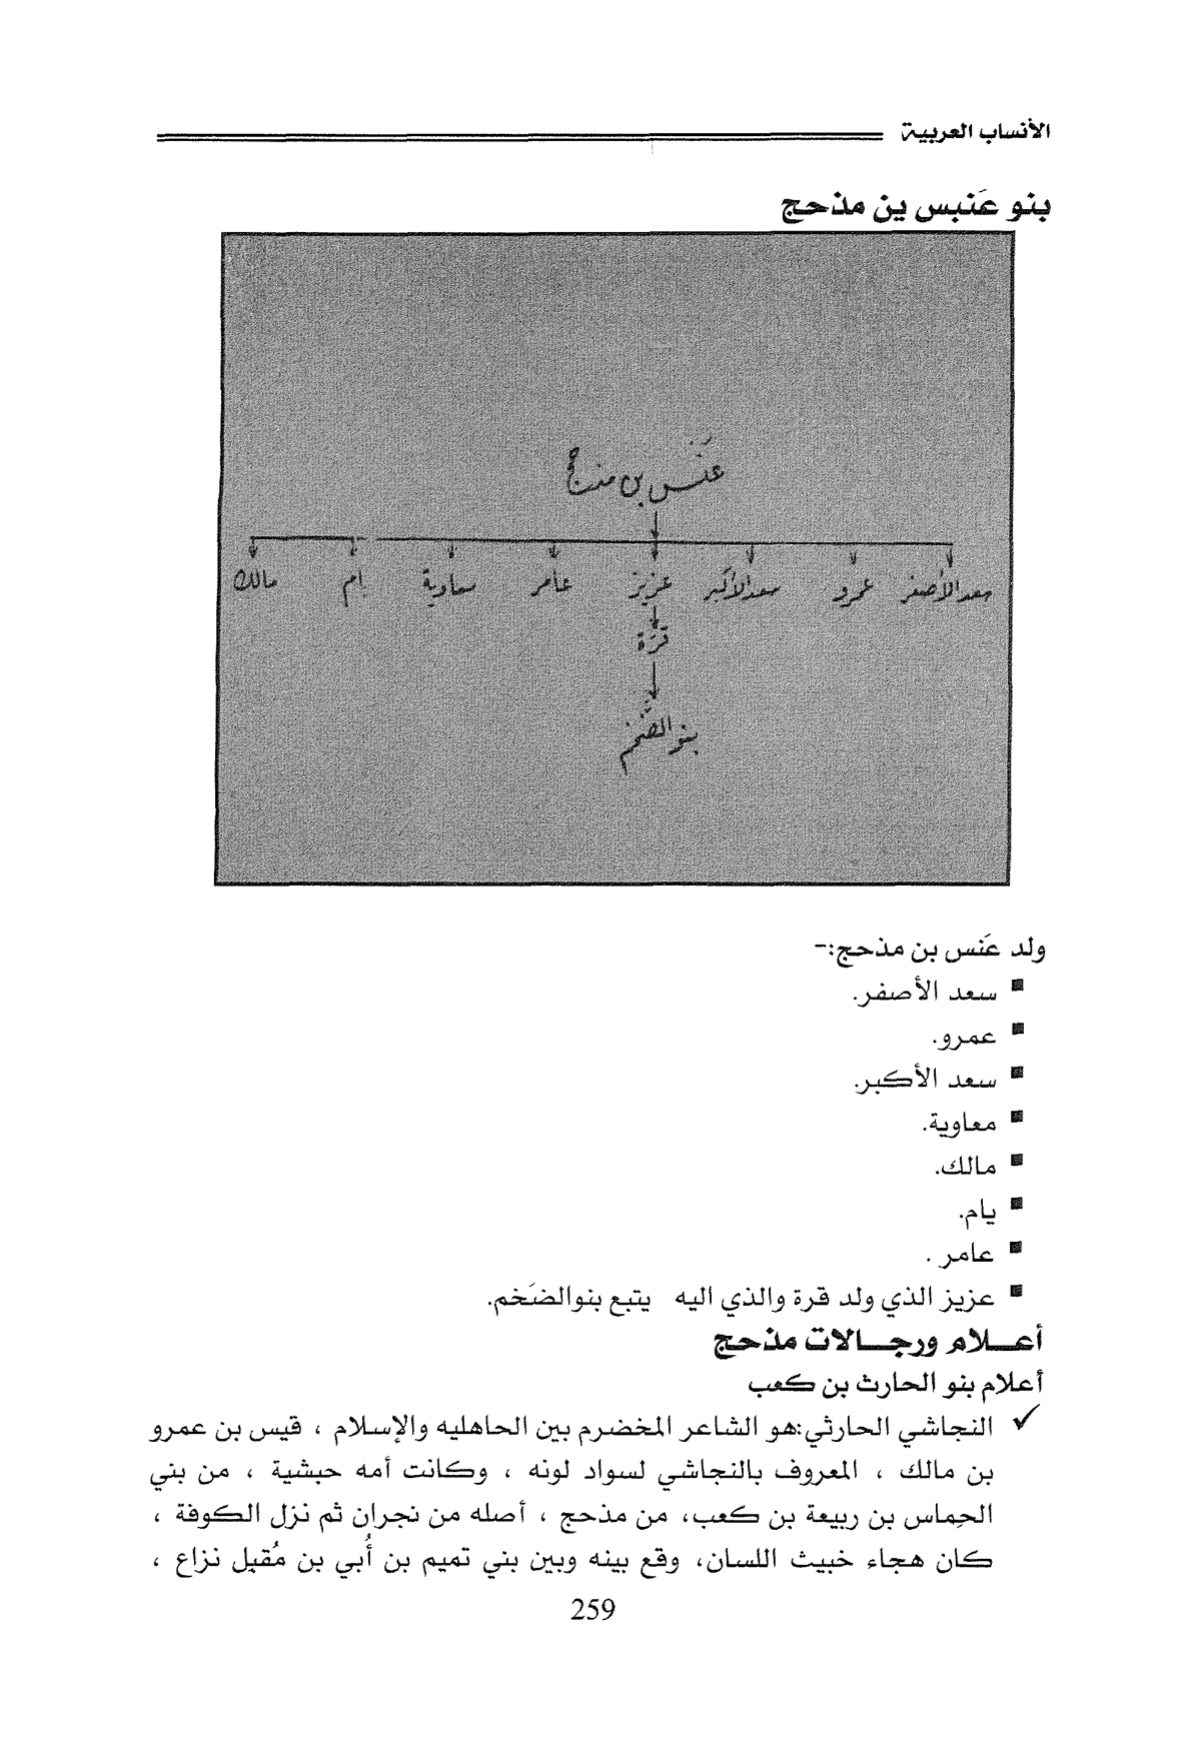 الأنساب العربية
بنو عَنبس ين مذحج
عَنَس بن مذحج
سعد الأصغر عمرو سعد الأكبر عزيز عامر معاوية يام مالك
قرّة
بنو الضَّخم
ولد عَنس بن مذحج:-
▪ سعد الأصفر.
▪ عمرو.
▪ سعد الأكبر.
▪ معاوية.
▪ مالك.
▪ يام.
▪ عامر .
▪ عزيز الذي ولد قرة والذي اليه يتبع بنوالضَخم.
أعـــلام ورجـــالات مذحج
أعلام بنو الحارث بن كعب
✓ النجاشي الحارثي:هو الشاعر المخضرم بين الحاهليه والإسلام ، قيس بن عمرو
بن مالك ، المعروف بالنجاشي لسواد لونه ، وكانت أمه حبشية ، من بني
الحِماس بن ربيعة بن كعب، من مذحج ، أصله من نجران ثم نزل الكوفة ،
كان هجاء خبيث اللسان، وقع بينه وبين بني تميم بن أُبي بن مُقبل نزاع ،
259